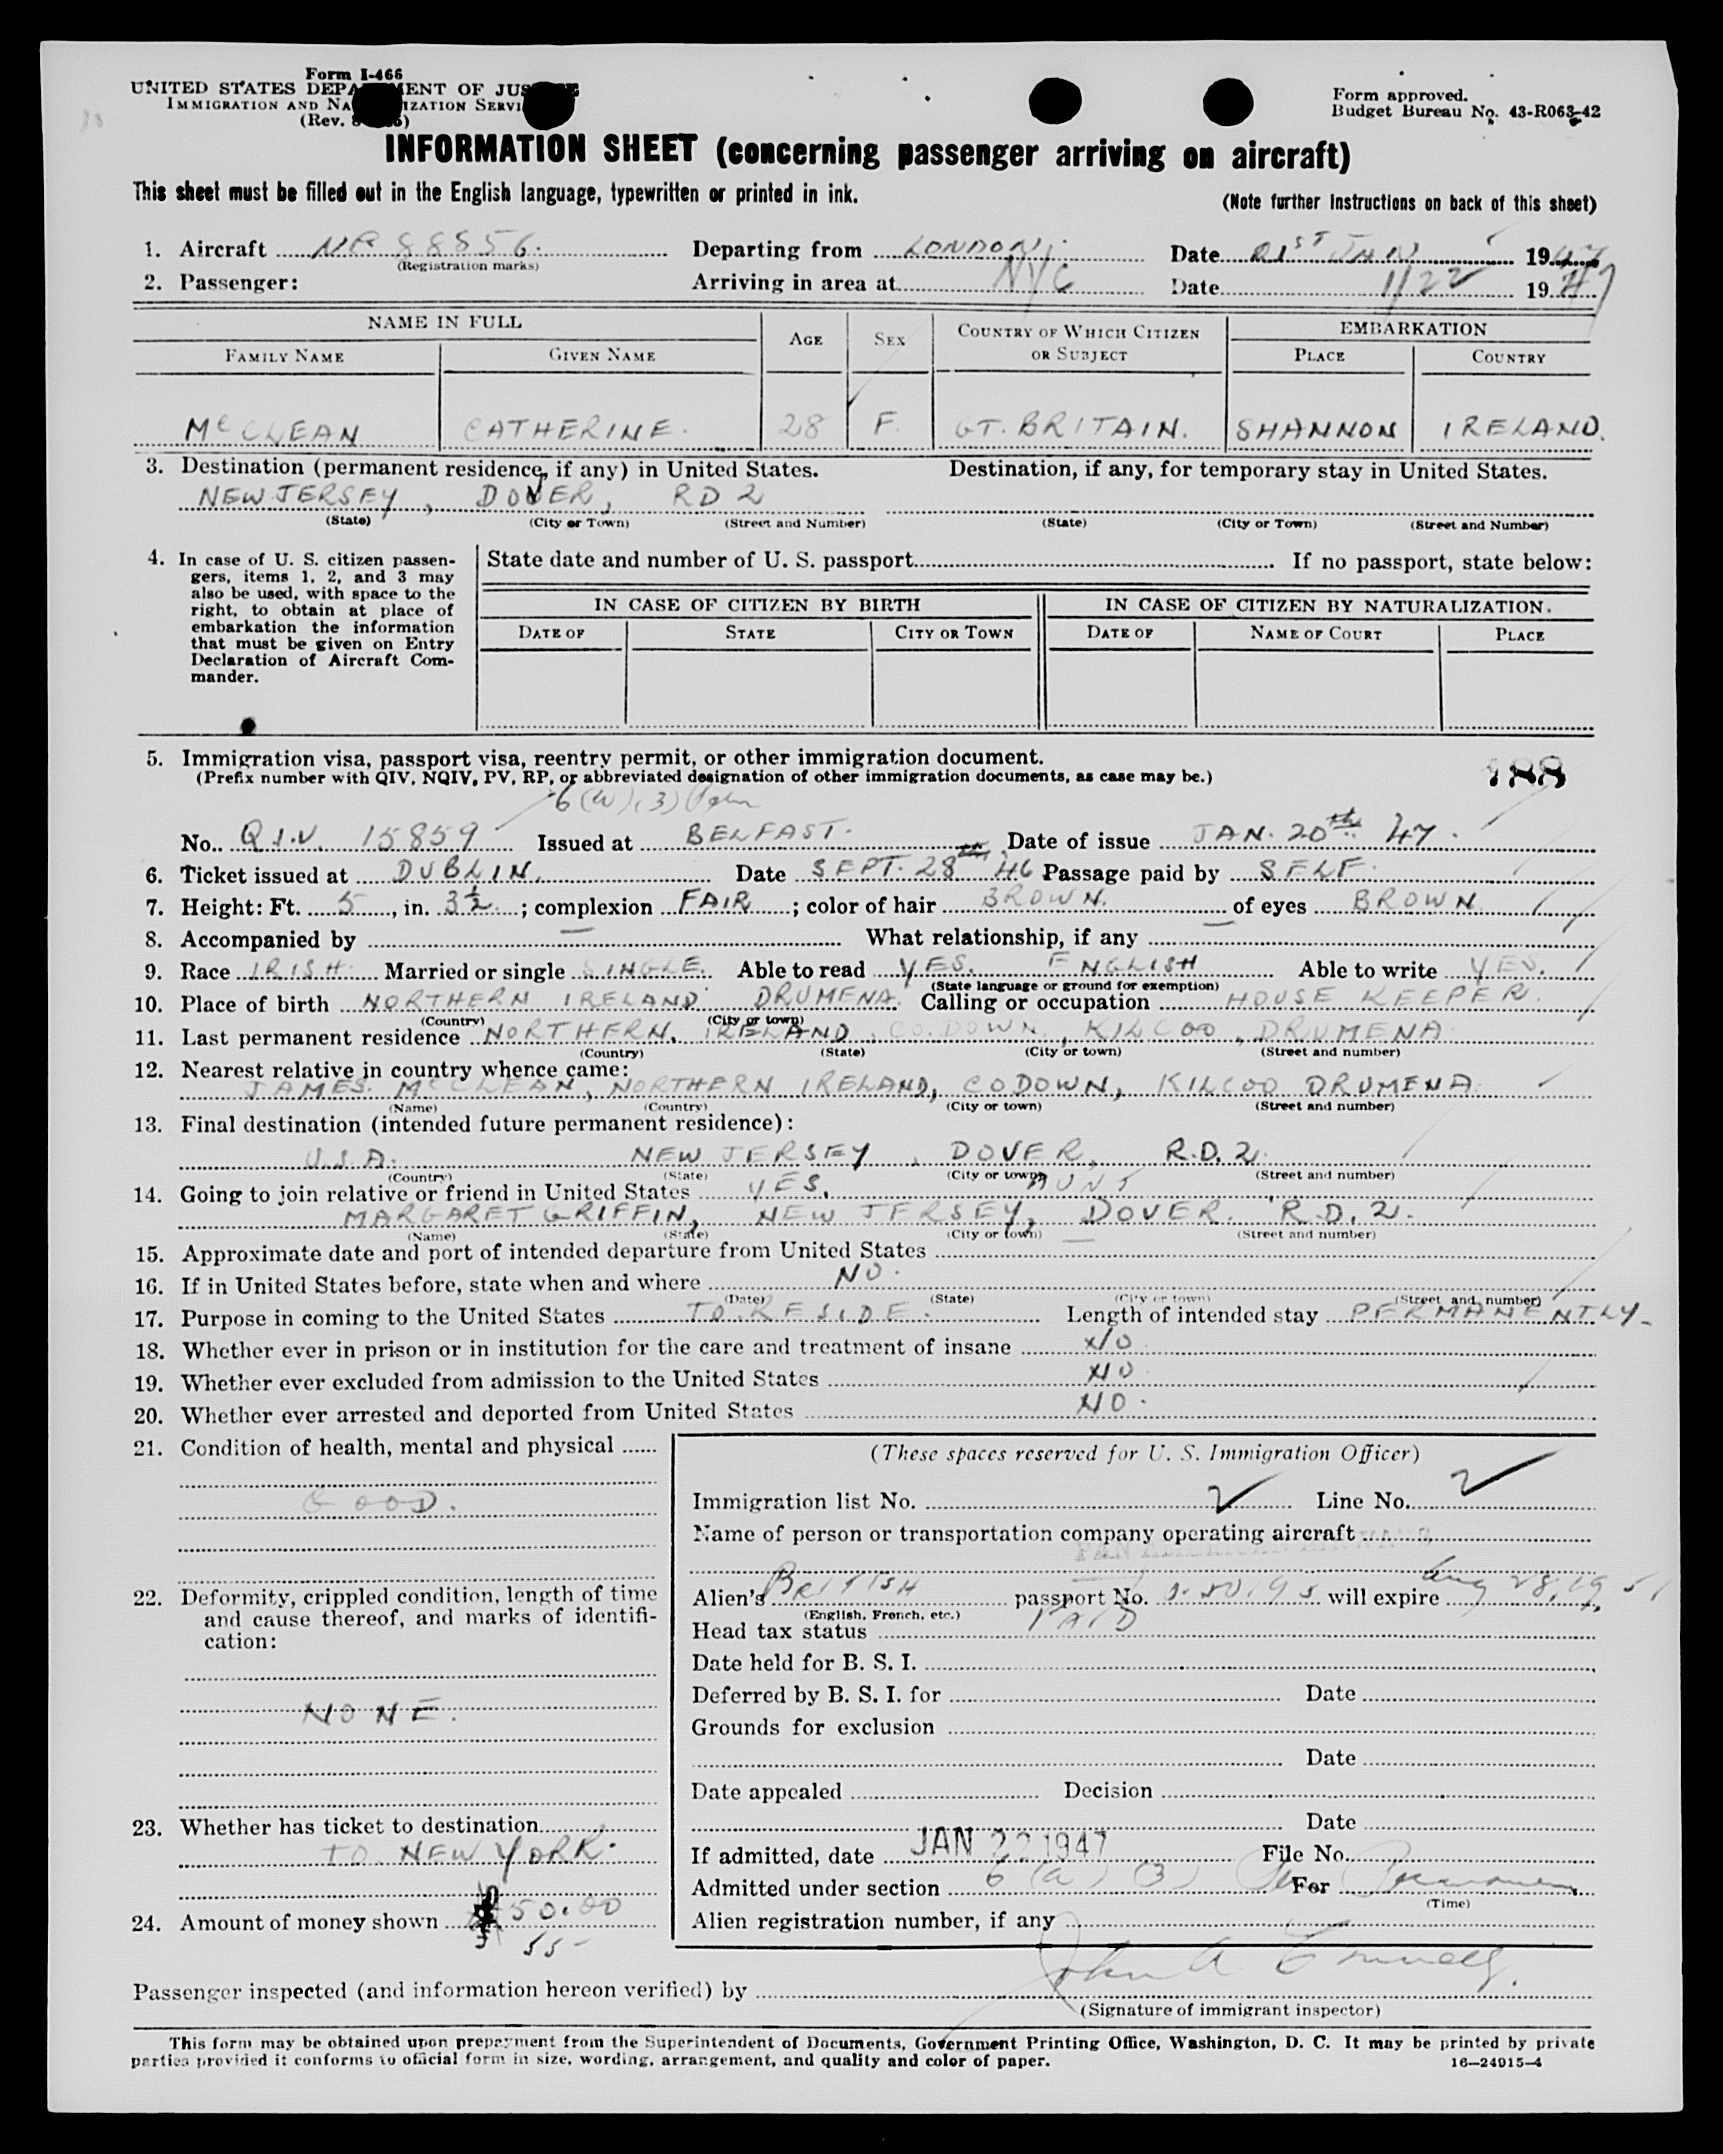 Form I-466
UNITED STATES DEPARTMENT OF JUSTICE
IMMIGRATION AND NATURALIZATION SERVICE
(Rev.
Form approved.
Budget Bureau No. 43-R063-42
INFORMATION SHEET (concerning passenger arriving on aircraft)
This sheet must be filled out in the English language, typewritten or printed in ink.
(Note further instructions on back of this sheet)
1. Aircraft NR 88856. Departing from LONDON. Date 21ST JAN 1947
(Registration marks)
2. Passenger: Arriving in area at NYC Date 1/22 1947
NAME IN FULL AGE SEX COUNTRY OF WHICH CITIZEN OR SUBJECT EMBARKATION
FAMILY NAME GIVEN NAME PLACE COUNTRY
McCLEAN CATHERINE. 28 F. GT. BRITAIN. SHANNON IRELAND.
3. Destination (permanent residence, if any) in United States. Destination, if any, for temporary stay in United States.
NEW JERSEY, DOVER, RD 2
(State) (City or Town) (Street and Number) (State) (City or Town) (Street and Number)
4. In case of U. S. citizen passen-
gers, items 1, 2, and 3 may
also be used, with space to the
right, to obtain at place of
embarkation the information
that must be given on Entry
Declaration of Aircraft Com-
mander.
State date and number of U. S. passport If no passport, state below:
IN CASE OF CITIZEN BY BIRTH IN CASE OF CITIZEN BY NATURALIZATION.
DATE OF STATE CITY OR TOWN DATE OF NAME OF COURT PLACE
5. Immigration visa, passport visa, reentry permit, or other immigration document.
(Prefix number with QIV, NQIV, PV, RP, or abbreviated designation of other immigration documents, as case may be.)
188
No. Q.I.V. 15859 Issued at BELFAST. Date of issue JAN. 20th 47.
6. Ticket issued at DUBLIN. Date SEPT. 28th 46 Passage paid by SELF.
7. Height: Ft. 5, in. 3½; complexion FAIR; color of hair BROWN. of eyes BROWN
8. Accompanied by — What relationship, if any —
9. Race IRISH. Married or single SINGLE. Able to read YES. ENGLISH Able to write YES.
(State language or ground for exemption)
10. Place of birth NORTHERN IRELAND. DRUMENA. Calling or occupation HOUSE KEEPER.
(Country) (City or town)
11. Last permanent residence NORTHERN. IRELAND, CO. DOWN, KILCOO, DRUMENA
(Country) (State) (City or town) (Street and number)
12. Nearest relative in country whence came:
JAMES. McCLEAN, NORTHERN IRELAND, CO DOWN, KILCOO DRUMENA
(Name) (Country) (City or town) (Street and number)
13. Final destination (intended future permanent residence):
U.S.A. NEW JERSEY, DOVER, R.D. 2.
(Country) (State) (City or town) (Street and number)
14. Going to join relative or friend in United States YES. AUNT
MARGARET GRIFFIN, NEW JERSEY, DOVER. R.D. 2.
(Name) (State) (City or town) (Street and number)
15. Approximate date and port of intended departure from United States —
16. If in United States before, state when and where NO.
(Date) (State) (City or town) (Street and number)
17. Purpose in coming to the United States TO RESIDE. Length of intended stay PERMANENTLY-
18. Whether ever in prison or in institution for the care and treatment of insane NO
19. Whether ever excluded from admission to the United States NO
20. Whether ever arrested and deported from United States NO.
21. Condition of health, mental and physical
GOOD.
22. Deformity, crippled condition, length of time
and cause thereof, and marks of identifi-
cation:
NONE.
23. Whether has ticket to destination
TO NEW YORK.
24. Amount of money shown $50.00
55-
(These spaces reserved for U. S. Immigration Officer)
Immigration list No. 2 Line No. 2
Name of person or transportation company operating aircraft
PAN AMERICAN
Alien's BRITISH passport No. will expire Aug 28, 1951
(English, French, etc.)
Head tax status PAID
Date held for B. S. I.
Deferred by B. S. I. for Date
Grounds for exclusion
Date
Date appealed Decision
Date
If admitted, date JAN 22 1947 File No.
Admitted under section 6 (a) (3) For
(Time)
Alien registration number, if any
Passenger inspected (and information hereon verified) by John A
(Signature of immigrant inspector)
This form may be obtained upon prepayment from the Superintendent of Documents, Government Printing Office, Washington, D. C. It may be printed by private
parties provided it conforms to official form in size, wording, arrangement, and quality and color of paper.
16—24915-4